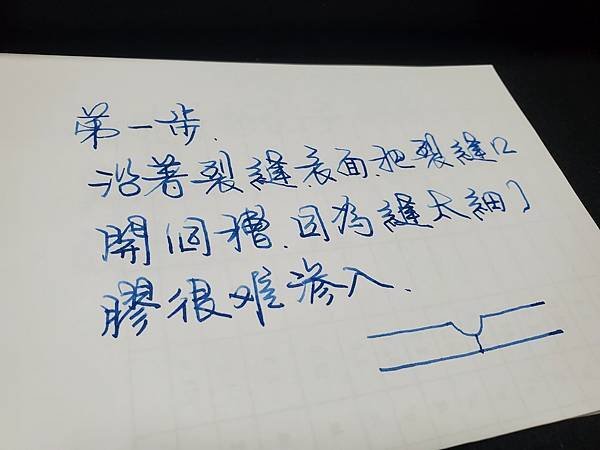 第一步.
沿著裂縫表面把裂縫口
開個槽.因為縫太細了
膠很难滲入.